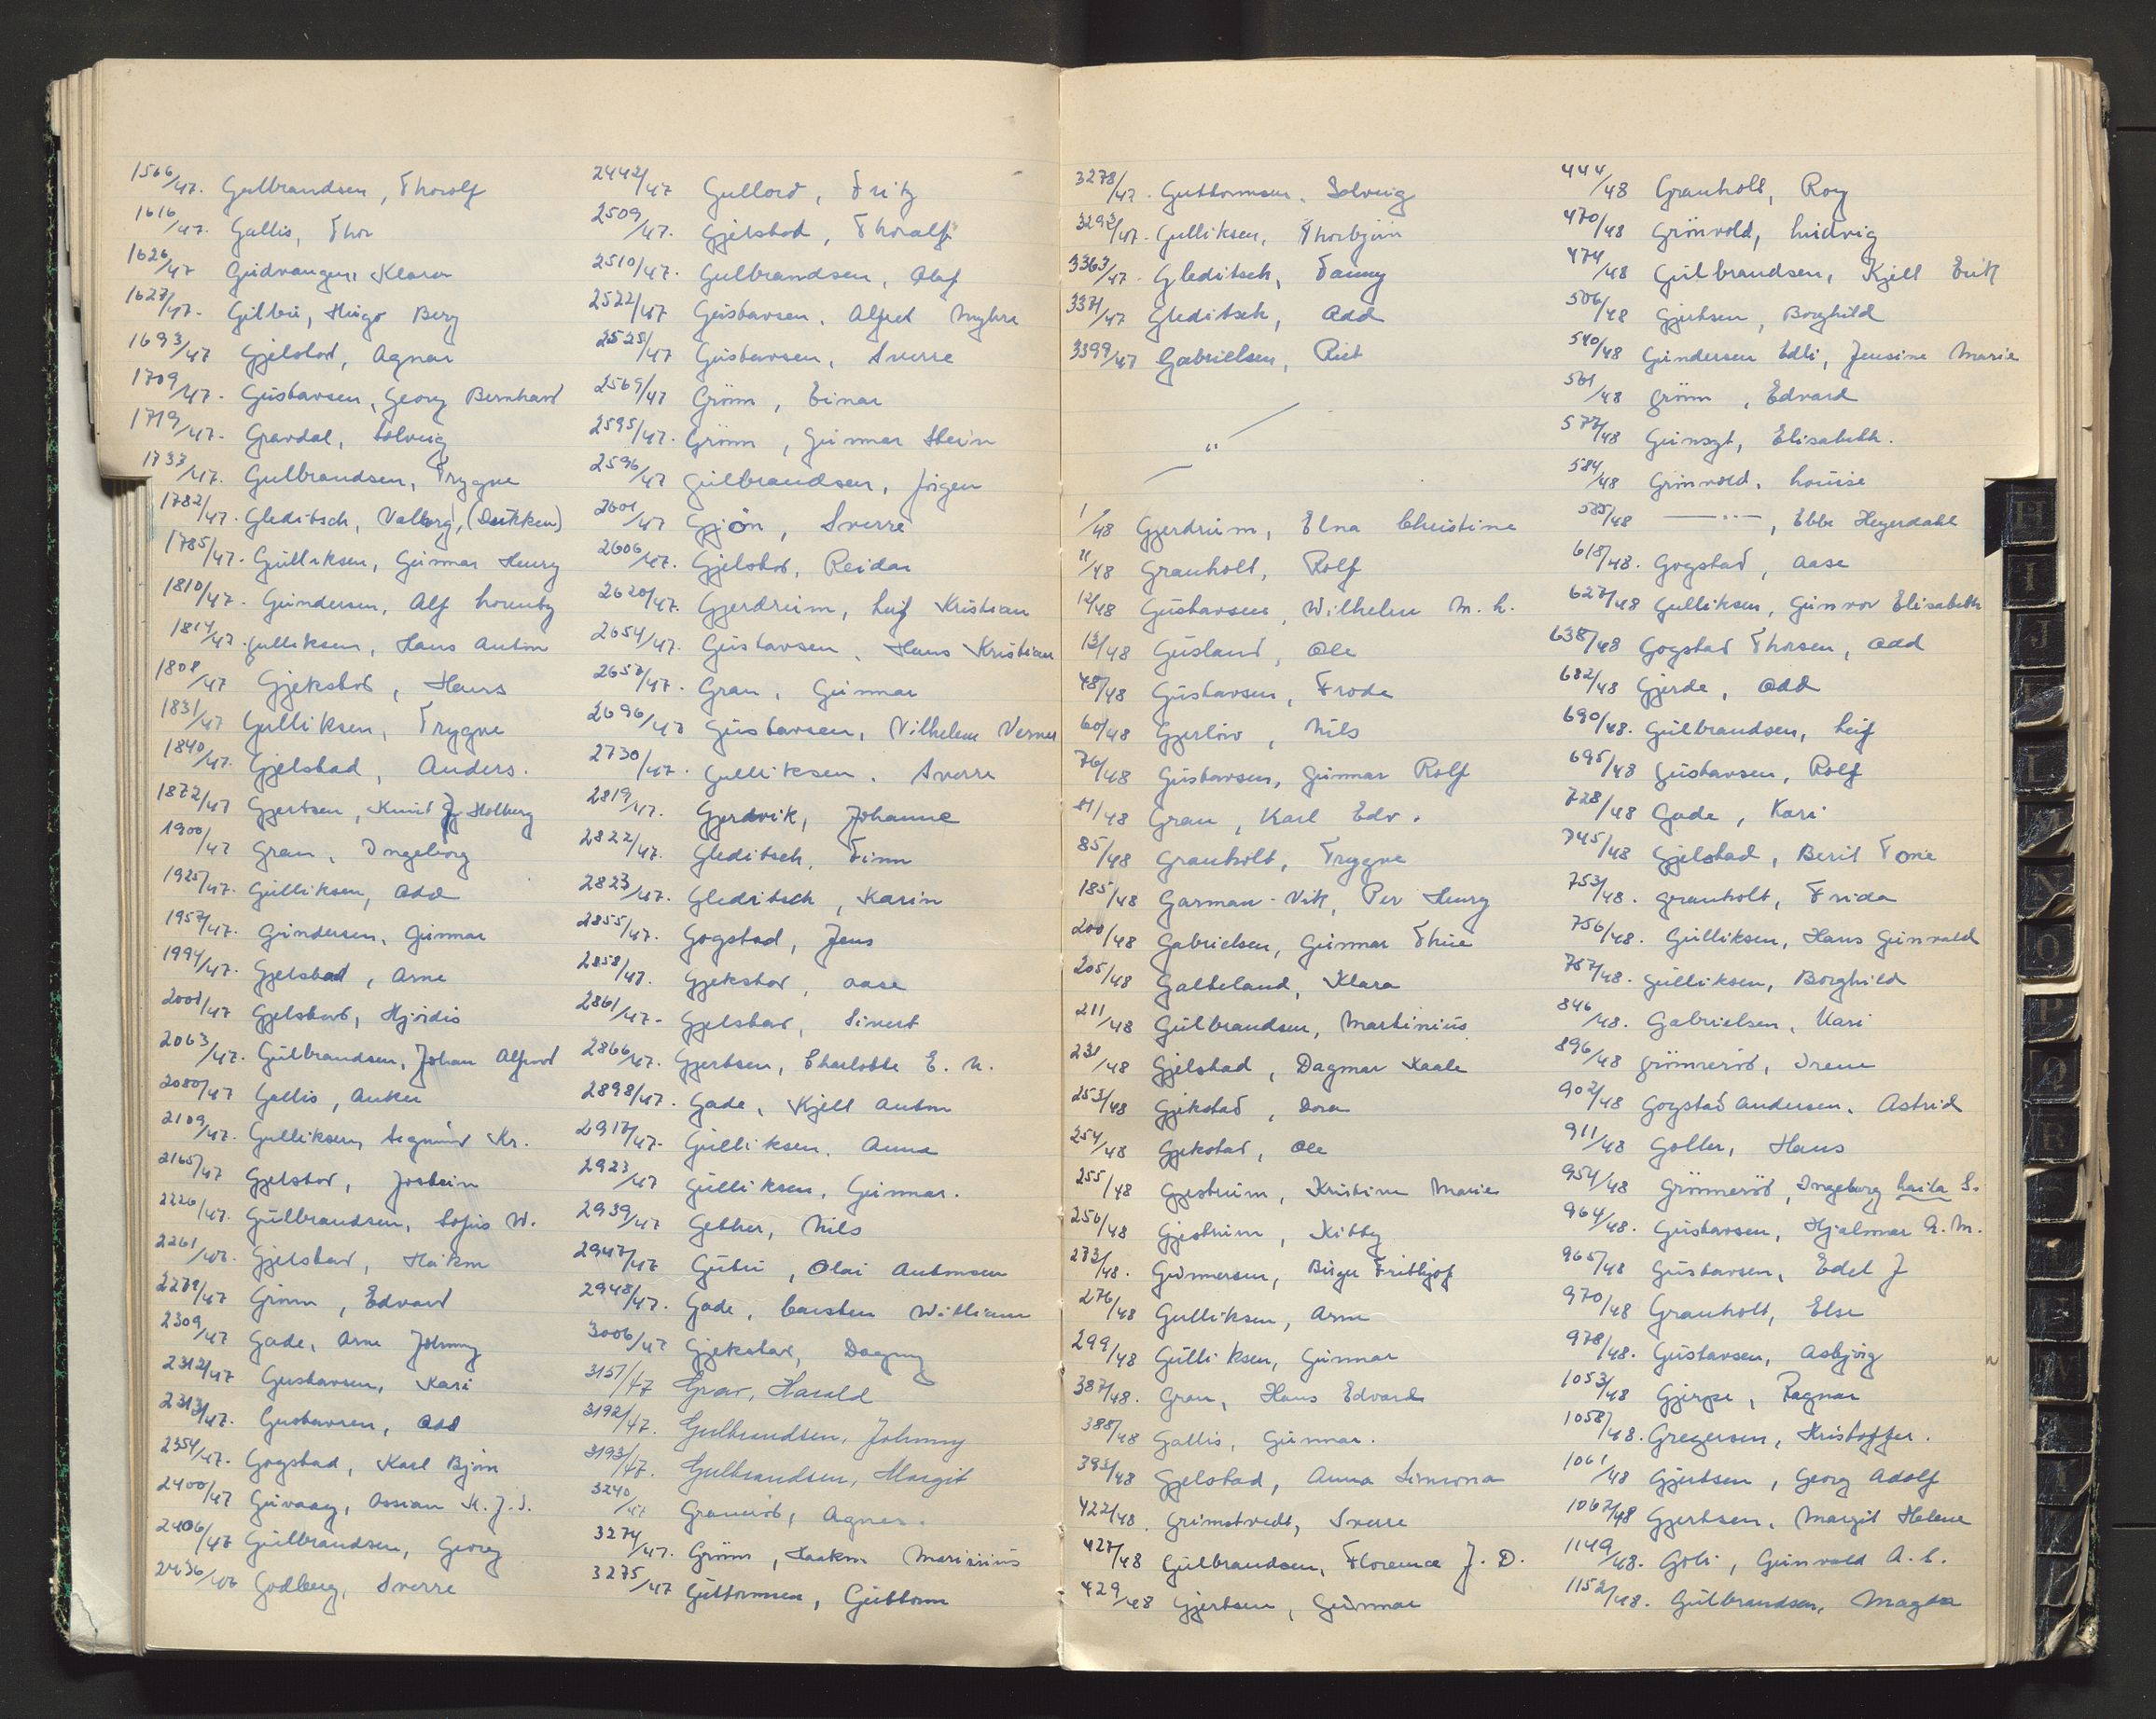 1566/47. Gulbrandsen, Thorolf
1616/47. Gallis, Thor
1626/47 Gudvangen, Klara
1627/47. Gilbu, Hugo Berg
1693/47 Gjelstad, Agnar
1709/47. Gustavsen, Georg Bernhard
1719/47. Gravdal, Solveig
1737/47. Gulbrandsen, Trygve
1782/47. Gleditsch, Valborg, (Dukken)
1785/47. Gulliksen, Gunnar Henry
1810/47. Gundersen, Alf Lorentz
1814/47. Gulliksen, Hans Anton
1808/47 Gjekstad, Hans
1831/47 Gulliksen, Trygve
1840/47. Gjelstad, Anders.
1872/47 Gjertsen, Knut J Holberg
1900/47 Gran, Ingeborg
1925/47. Gulliksen, Odd
1957/47. Gundersen, Gunnar
1994/47. Gjelstad, Arne
2001/47 Gjelstad, Hjördis
2063/47. Gulbrandsen, Johan Alfred
2080/47 Gallis, Anker
2109/47. Gulliksen, Sigmund Kr.
2165/47 Gjelstad, Jostein
2226/47. Gulbrandsen, Sofus W.
2261/47. Gjelstad, Håkon
2278/47 Grönn, Edvard
2309/47 Gade, Arne Johnny
2312/47 Gustavsen, Kari
2313/47. Gustavsen, Odd
2354/47. Gogstad, Karl Björn
2400/47 Guvaag, Ossian K. J. S.
2406/47 Gulbrandsen, Georg
2436/47 Godberg, Sverre
2442/47 Gullord, Fritz
2509/47. Gjelstad, Thoralf
2510/47. Gulbrandsen, Olaf
2522/47 Gustavsen, Alfred Myhre
2525/47 Gustavsen, Sverre
2569/47 Grönn, Einar
2595/47. Grönn, Gunnar Stein
2596/47 Gulbrandsen, Jörgen
2601/47 Gjön, Sverre
2606/47. Gjelstad, Reidar
2620/47. Gjerdrum, Leif Kristian
2654/47. Gustavsen, Hans Kristian
2657/47. Gran, Gunnar
2696/47 Gustavsen, Vilhelm Verner
2730/47. Gulliksen, Sverre
2819/47. Gjerdvik, Johanne
2822/47. Gleditsch, Finn
2823/47. Gleditsch, Karin
2855/47. Gogstad, Jens
2858/47. Gjekstad, Aase
2861/47. Gjelstad, Sivert
2866/47. Gjertsen, Charlotte E. N.
2898/47. Gade, Kjell Anton
2917/47. Gulliksen, Anna
2923/47 Gulliksen, Gunnar.
2939/47 Gether, Nils
2947/47 Gutu, Olai Antonsen
2948/47. Gade, Carsten William
3006/47 Gjekstad, Dagny
3157/47 Grav, Harald
3192/47. Gulbrandsen, Johnny
3193/47. Gulbrandsen, Margit
3240/47 Graneröd, Agnes.
3274/47. Grönn, Haakon Marinius
3275/47 Guttormsen, Guttorm
3278/47. Guttormsen, Solveig
3292/47. Gulliksen, Thorbjörn
3363/47. Gleditsch, Fanny
3371/47 Gleditsch, Odd
3399/47 Gabrielsen, Riet
— " —
1/48 Gjerdrum, Elna Christine
11/48 Granholt, Rolf
12/48 Gustavsen, Wilhelm M. L.
13/48 Gusland, Ole
48/48 Gustavsen, Frode
60/48 Gjerlöw, Nils
76/48 Gustavsen, Gunnar Rolf
81/48 Gran, Karl Edv.
85/48 Granholt, Trygve
185/48 Garman-Vik, Per Henry
200/48 Gabrielsen, Gunnar Thue
205/48 Galteland, Klara
211/48 Gulbrandsen, Martinius
231/48 Gjelstad, Dagmar Kaale
253/48 Gjekstad, Dora
254/48 Gjekstad, Ole
255/48 Gjestrum, Kristine Marie
256/48 Gjestrum, Kitty
273/48. Gunnersen, Birger Frithjof
276/48 Gulliksen, Arne
299/48 Gulliksen, Gunnar
387/48. Gran, Hans Edvard
388/48 Gallis, Gunnar.
395/48 Gjelstad, Anna Simona
422/48. Grimstvedt, Sverre
427/48 Gulbrandsen, Florence J. D.
429/48 Gjertsen, Gunnar
444/48 Granholt, Roy
470/48 Grönvold, Ludvig
474/48 Gulbrandsen, Kjell Erik
506/48 Gjertsen, Borghild
540/48 Gundersen Edli, Jensine Marie
561/48 Grönn, Edvard
577/48 Gunszt, Elisabeth.
584/48 Grönvold, Louise
585/48 — " —, Ebbe Heyerdahl
618/48. Gogstad, Aase
627/48 Gulliksen, Gunvor Elisabeth
638/48 Gogstad Thorsen, Odd
682/48 Gjerde, Odd
690/48. Gulbrandsen, Leif
695/48 Gustavsen, Rolf
728/48 Gade, Kari
745/48 Gjelstad, Berit Tone
753/48. Granholt, Frida
756/48. Gulliksen, Hans Gunvald
757/48. Gulliksen, Borghild
846/48. Gabrielsen, Kari
896/48 Grönneröd, Irene
902/48 Gogstad Andersen, Astrid
911/48 Goller, Hans
954/48 Grönneröd, Ingeborg Laila S.
964/48. Gustavsen, Hjalmar A. M.
965/48 Gustavsen, Edel J
970/48 Granholt, Else
978/48. Gustavsen, Asbjörg
1053/48 Gjerpe, Ragnar
1058/48. Gregersen, Kristoffer.
1061/48 Gjertsen, Georg Adolf
1067/48 Gjertsen, Margit Helene
1149/48. Goli, Gunvald A. C.
1152/48. Gulbrandsen, Magda
H
I
J
K
L
M
N
O
P
Q
R
W